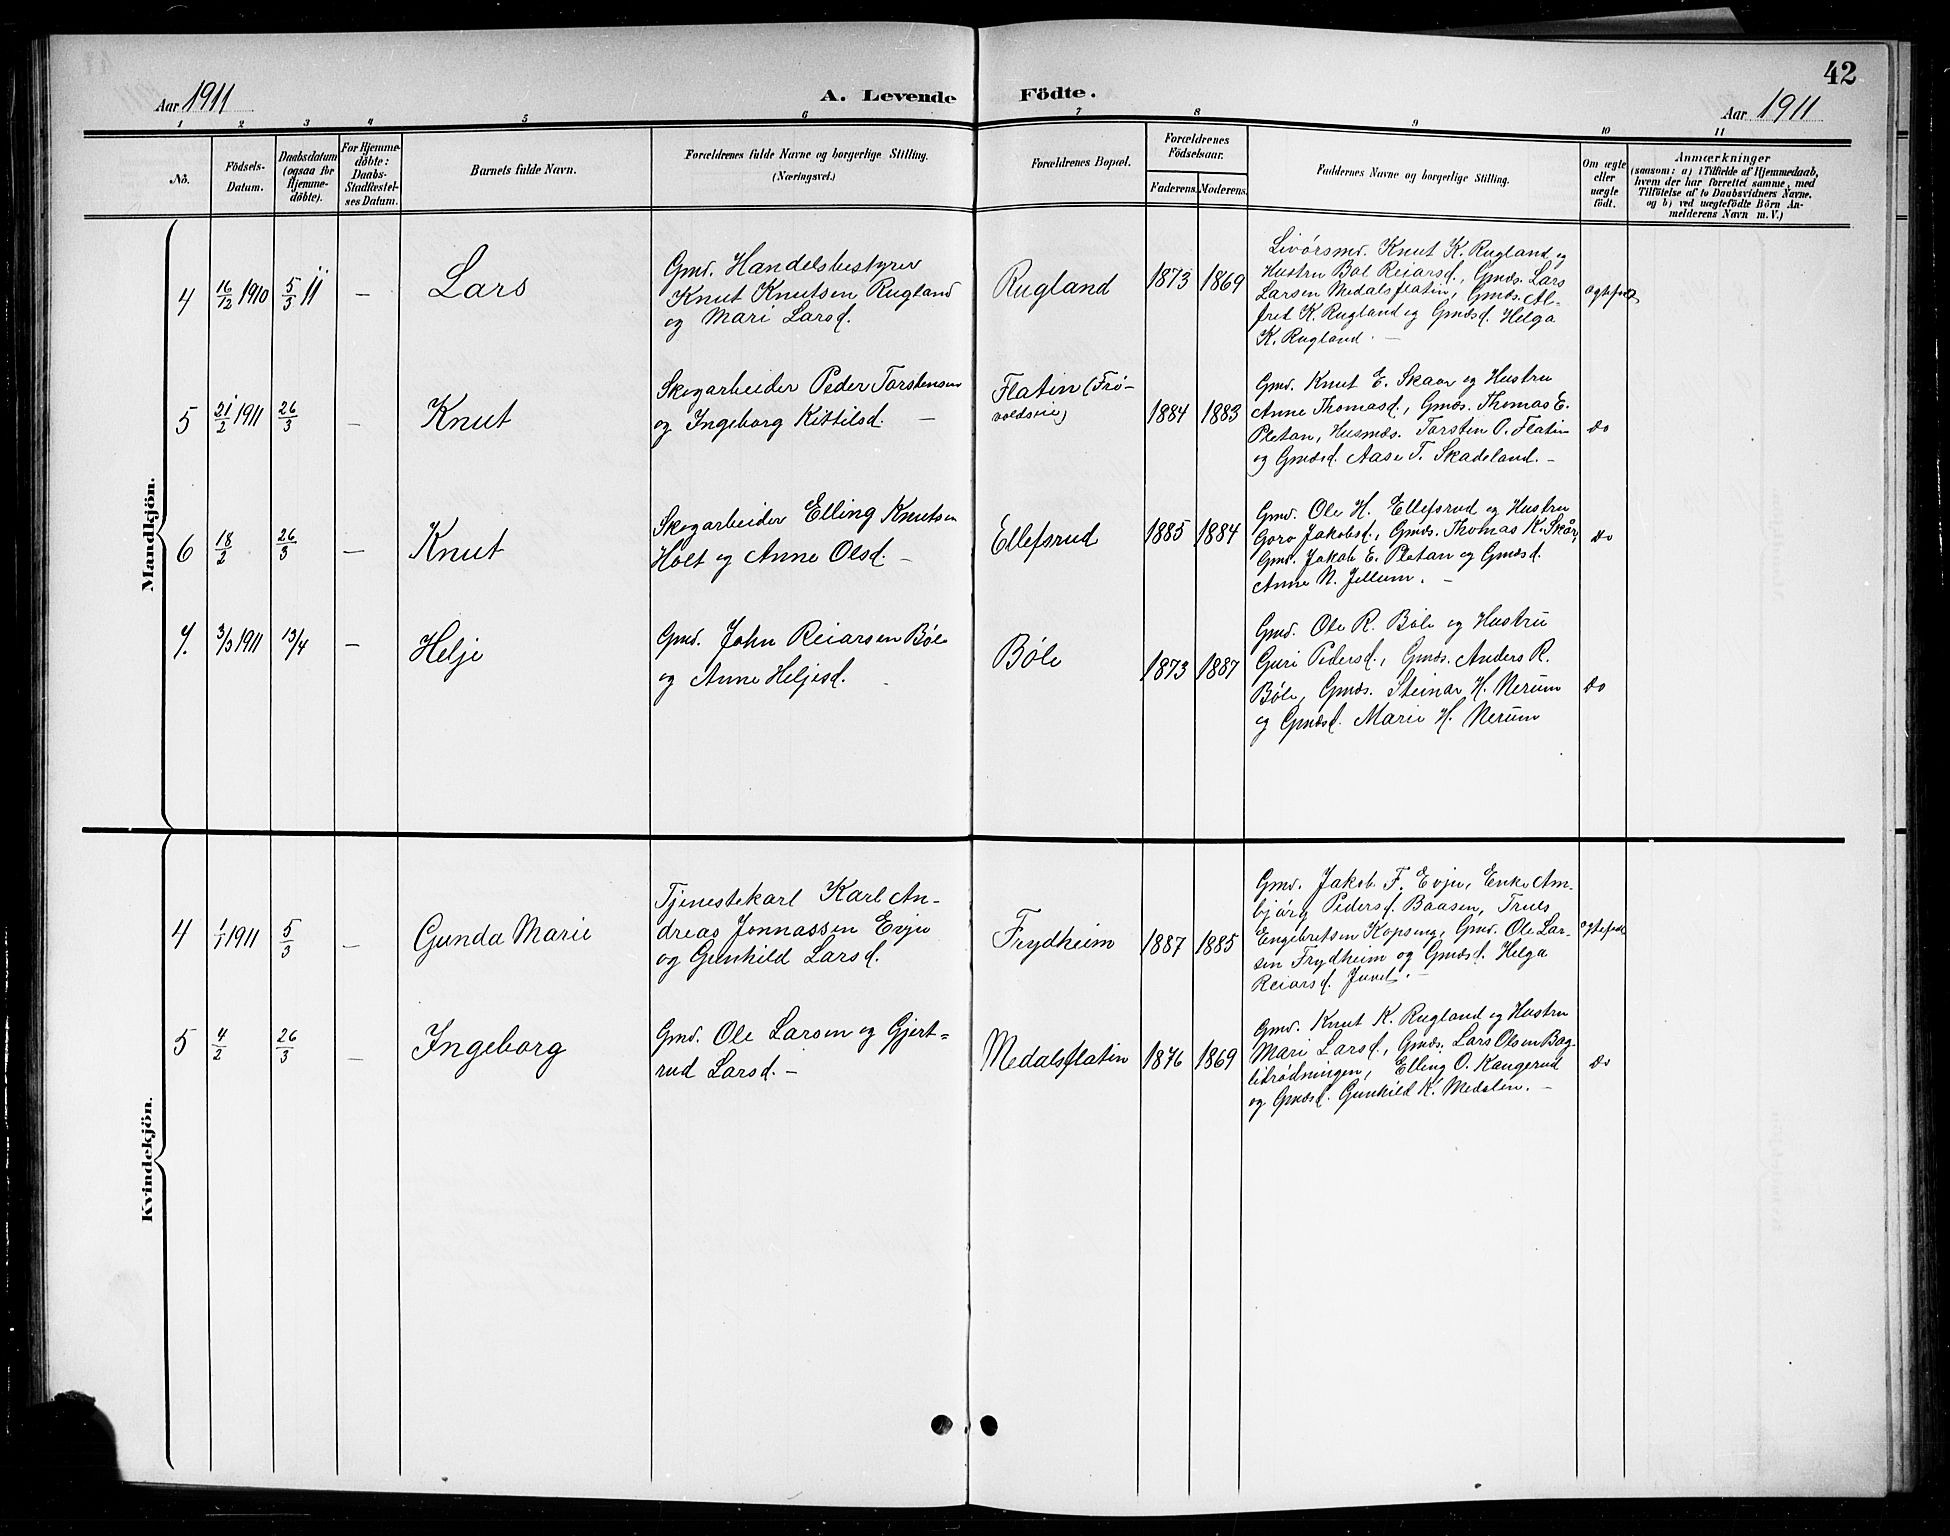 42
Aar 1911
A. Levende Födte.
Aar 1911
1 2 3 4 5 6 7 8 9 10 11
No.
Födsels-
Datum.
Daabsdatum
(ogsaa for
Hjemme-
døbte).
For Hjemme-
døbte:
Daabs-
Stadfæstel-
ses Datum.
Barnets fulde Navn.
Forældrenes fulde Navne og borgerlige Stilling.
(Næringsvei.)
Forældrenes Bopæl.
Forældrenes
Födselsaar.
Faderens. Moderens.
Faddernes Navne og borgerlige Stilling.
Om ægte
eller
uægte
födt.
Anmærkninger
(saasom: a) i Tilfælde af Hjemmedaab,
hvem der har forrettet samme, med
Tilføielse af to Daabsvidners Navne.
og b) ved uægtefödte Börn An-
melderens Navn m. V.)
Mandkjön.
4
16/12 1910
5/3 11
—
Lars
Gmd. Handelsbestyrer
Knut Knutsen Rugland
og Mari Larsd.
Rugland
1873
1869
Livörsmd. Knut K. Rugland og
Hustru Böl Reiarsd., Gmds. Lars
Larsen Medalsflatin, Gmds. Al-
fred K. Rugland og Gmdsd. Helga
K. Rugland. —
ægtefød
5
21/2 1911
26/3
—
Knut
Skogarbeider Peder Torstensen
og Ingeborg Kittilsd. —
Flatin (Frö-
voldseie)
1884
1883
Gmd. Knut E. Skaar og Hustru
Anne Thomasd., Gmds. Thomas E.
Pletan, Husmds. Torsten O. Flatin
og Gmdsd. Aase T. Skadeland. —
do
6
18/2
26/3
—
Knut
Skogarbeider Elling Knutsen
Holt og Anne Olsd. —
Ellefsrud
1885
1884
Gmd. Ole H. Ellefsrud og Hustru
Goro Jakobsd., Gmds. Thomas K. Skår,
Gmd. Jakob E. Pletan og Gmdsd.
Anne N. Jellum. —
do
7.
3/3 1911
13/4
—
Helje
Gmd. John Reiarsen Böle
og Anne Heljesd.
Böle
1873
1887
Gmd. Ole R. Böle og Hustru
Guri Pedersd., Gmds. Anders R.
Böle, Gmds. Steinar H. Nerum
og Gmdsd. Marie H. Nerum
do
Kvindekjön.
4
1/1 1911
5/3
—
Gunda Marie
Tjenestekarl Karl An-
dreas Jonnassen Evju
og Gunhild Larsd.
Frydheim
1887
1885
Gmd. Jakob F. Evju, Enke Am-
björg Pedersd. Baasen, Truls
Engebretsen Kopseng, Gmd. Ole Lar-
sen Frydheim og Gmdsd. Helga
Reiarsd. Juvet. —
ægtefød
5
4/2
26/3
—
Ingeborg
Gmd. Ole Larsen og Gjert-
rud Larsd. —
Medalsflatin
1876
1869
Gmd. Knut K. Rugland og Hustru
Mari Larsd., Gmds. Lars Olsen Bag-
lirödningen, Elling O. Kangerud
og Gmdsd. Gunhild K. Medalen. —
do